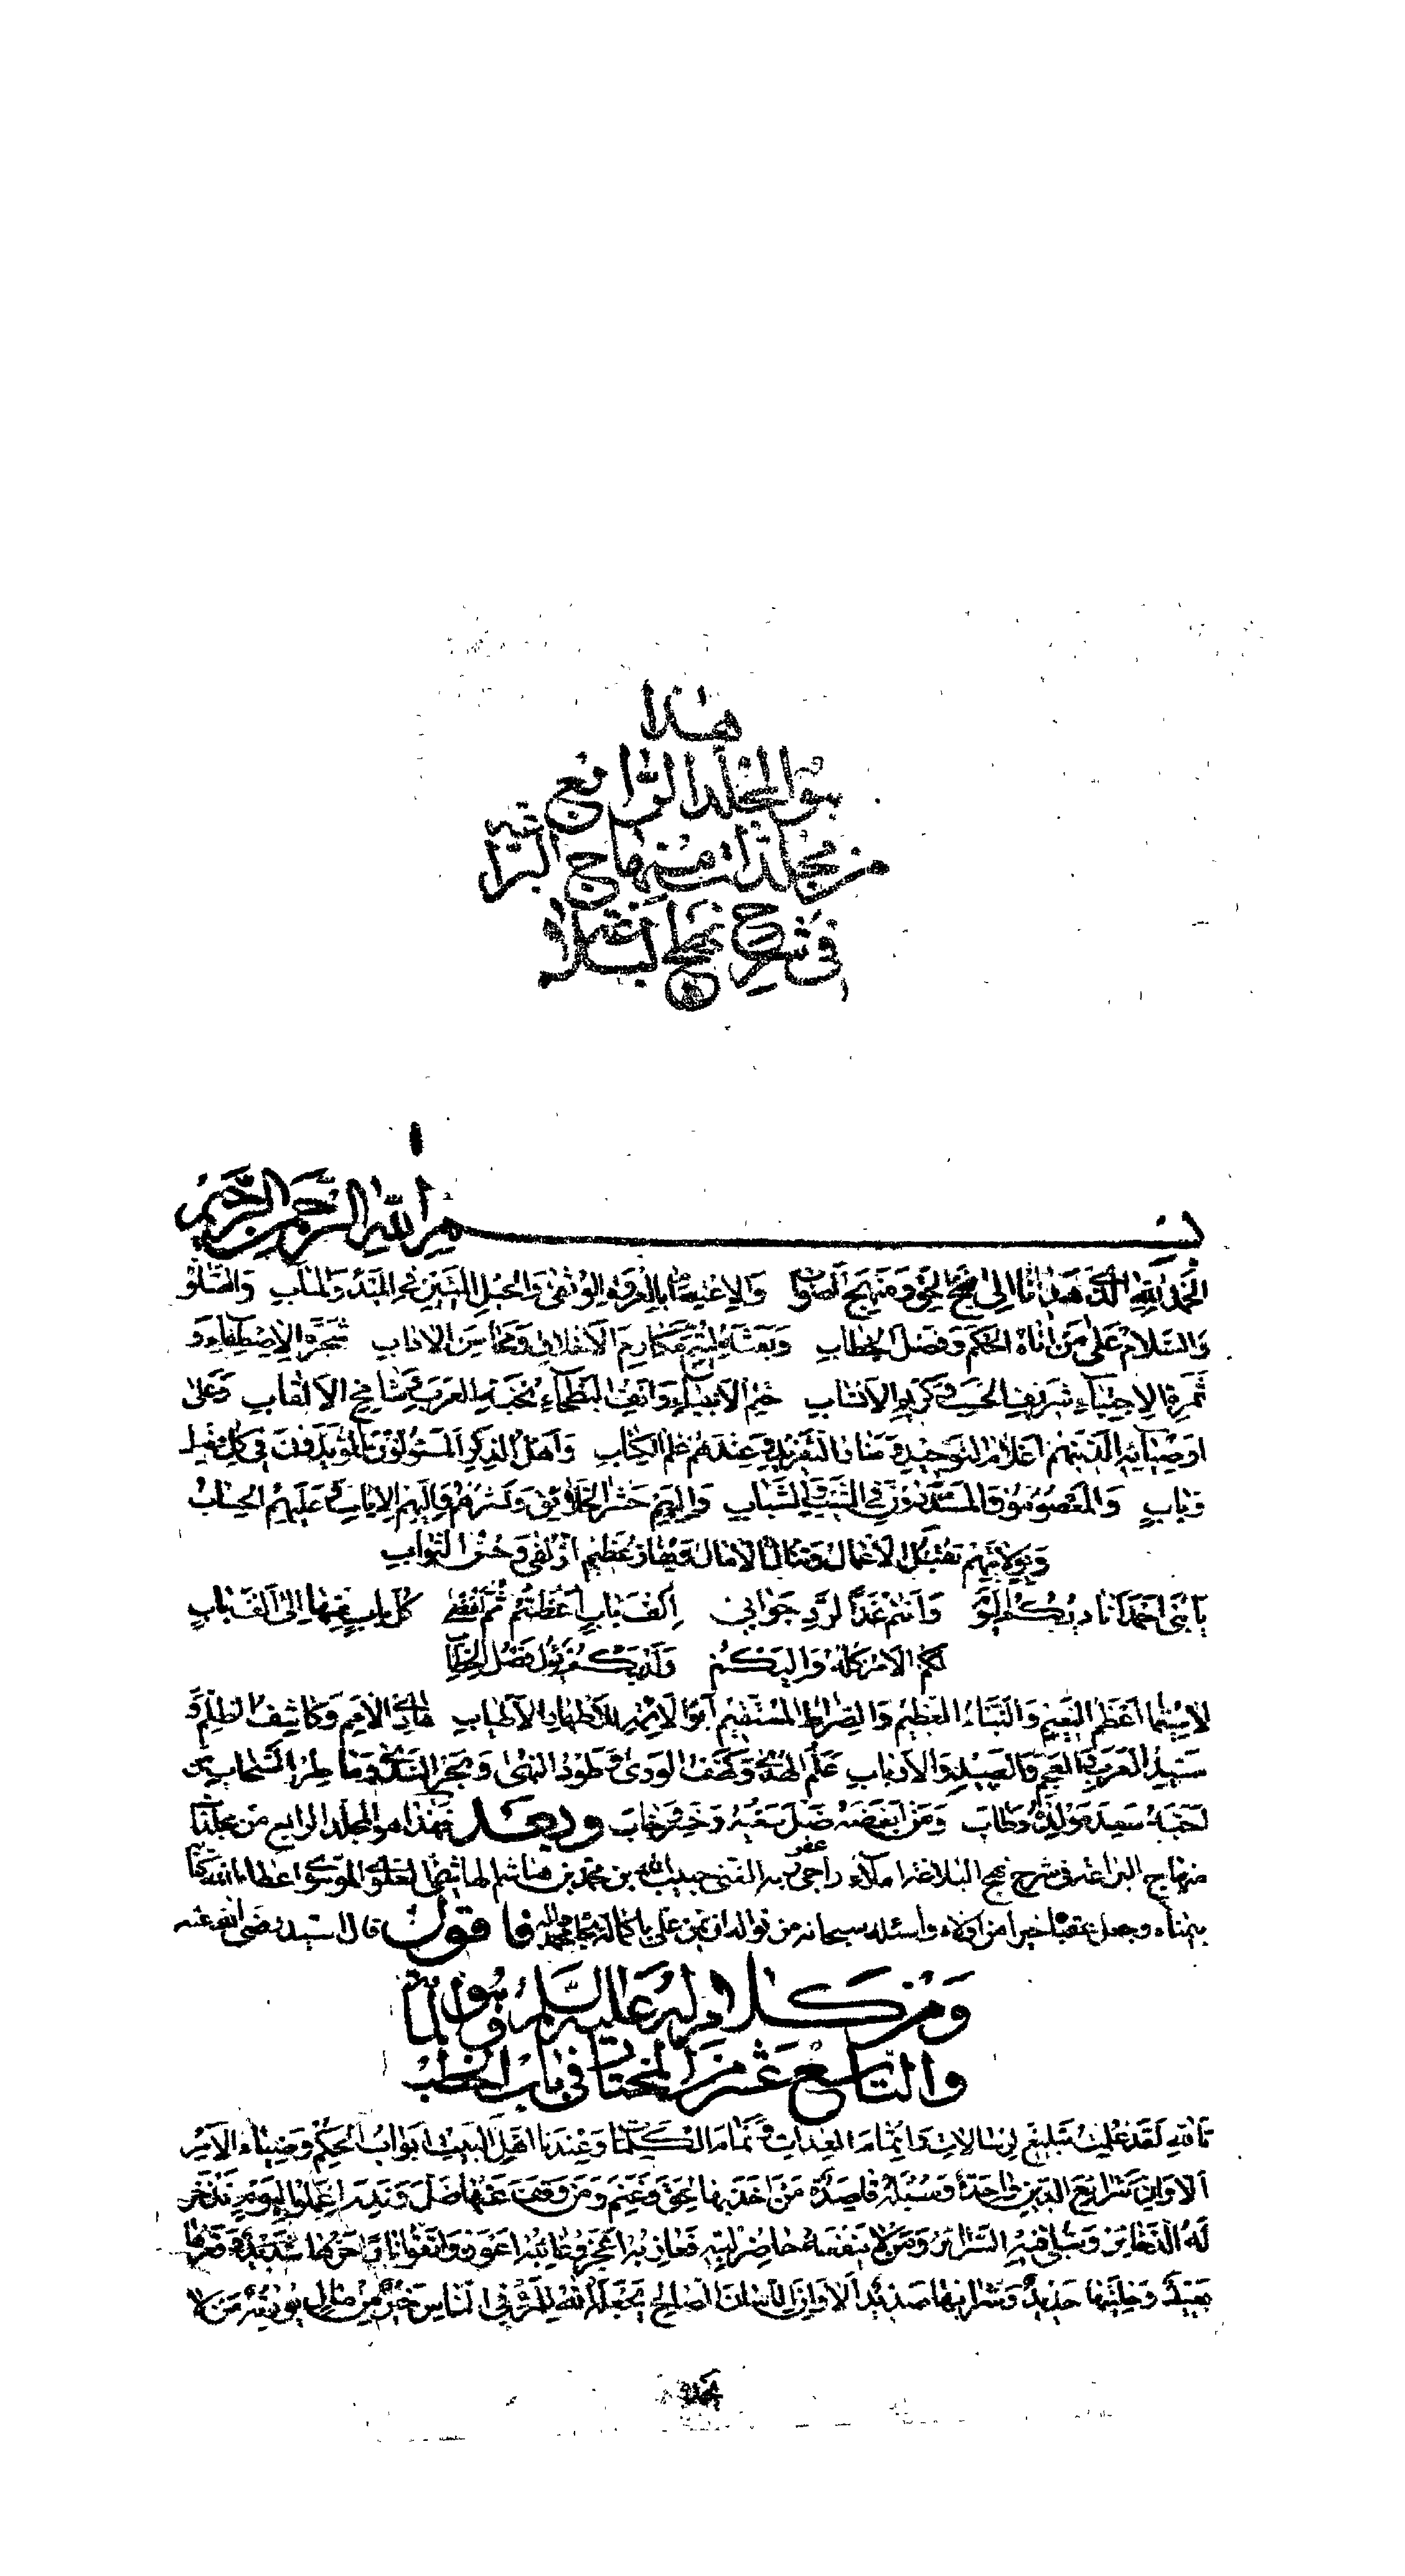 هذا
هو المجلد الرابع
من مجلدات منهاج البراعة
في شرح نهج البلاغة
بسم الله الرحمن الرحيم
الحمد لله الذي هدانا إلى نهج الحق ومنهج الصواب والاعتصام بالعروة الوثقى والحبل المتين في المبدء والمآب والصلوة
والسلام على من اتاه الحكم وفصل الخطاب وبعثه ليتمم مكارم الاخلاق ومحاسن الاداب شجرة الاصطفاء و
ثمرة الاجتباء شريف الحسب وكريم الانساب ختم الانبياء وانف البطحاء نخبة العرب شامخ الالقاب وعلى
اوصيائه الذينهم اعلام التوحيد ومنار التفريد وعندهم علم الكتاب واهل الذكر المسئولون المؤيدون في كل
وباب والمعصومون المسددون في الشيب والشباب واليهم حشر الخلايق ونشرهم واليهم الاياب وعليهم الحساب
وبولايتهم تقبل الاعمال وتنال الامال وبها زعظيم الزلفى وحسن الثواب
يا بني احمد اناديكم اليوم وانتم غدا لرد جوابي الف باب اعطيتم ثم افضى كل باب منها الى الف باب
لكم الامر كله واليكم ولديكم يؤل فصل الخطاب
لاسيما اعظم النعيم والنباء العظيم والصراط المستقيم ابو الائمة الاطهار الاطياب هادي الامم وكاشف الظلم و
سيد العرب والعجم والصيد والارباب علم الهدى وكهف الورى وطود النهى وبحر الندى وما طر السحاب من
احبه سعد مولده وطاب ومن ابغضه ضل سعيه وخسر وخاب وبعد فهذا هو المجلد الرابع من مجلدات
منهاج البراعة في شرح نهج البلاغة املاء راجي عفو ربه الغني حبيب الله بن محمد بن هاشم الهاشمي العلوي الموسوي اعطاه الله كتابه
بيمناه وجعل عقباه خيرا من اولاه واسئله سبحانه من نواله ان يمن علي باكماله بمحمد وآله فاقول قال السيد رضي الله عنه
ومن كلام له عليه السلام وهو المائة
والتاسع عشر من المختار في باب الخطب
تالله لقد علمت تبليغ الرسالات واتمام العدات وتمام الكلمات وعندنا اهل البيت ابواب الحكم وضياء الامر
الا وان شرايع الدين واحدة وسبله قاصدة من اخذ بها لحق وغنم ومن وقف عنها ضل وندم اعملوا ليوم تذخر
له الذخاير وتبلى فيه السرائر ومن لا ينفعه حاضر لبه فعازبه عنه اعجز وغائبه اعوز واتقوا نارا حرها شديد وقعرها
بعيد وحليتها حديد وشرابها صديد الا وان اللسان الصالح يجعله الله للمرء في الناس خير من المال يورثه من لا
يحمده